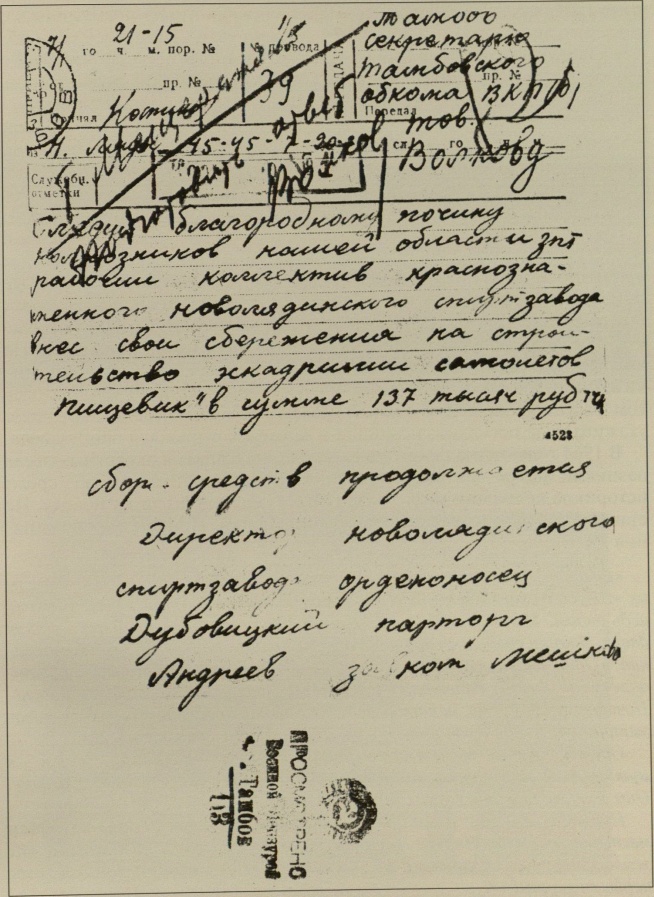 21-15
7/ го ч. м. пор. № провода
Тамбов
секретарю
Тамбовского
обкома ВКП/б/
пр. № 39
Передал
тов.
Волкову
Н. Ляда 45-45-7-20-
Служебн.
отметки
подготовить ответ
Следуя благородному почину
колхозников нашей области зпт
рабочий коллектив краснозна-
менного новолядинского спиртзавода
внес свои сбережения на строи-
тельство эскадрильи самолетов
Пищевик" в сумме 137 тысяч руб тчк
4523
сбор средств продолжается
Директор новолядинского
спиртзавода орденоносец
Дубовицкий парторг
Андреев завком Мешков
ПРОСМОТРЕНО
Военной Цензурой
г. Тамбов
13